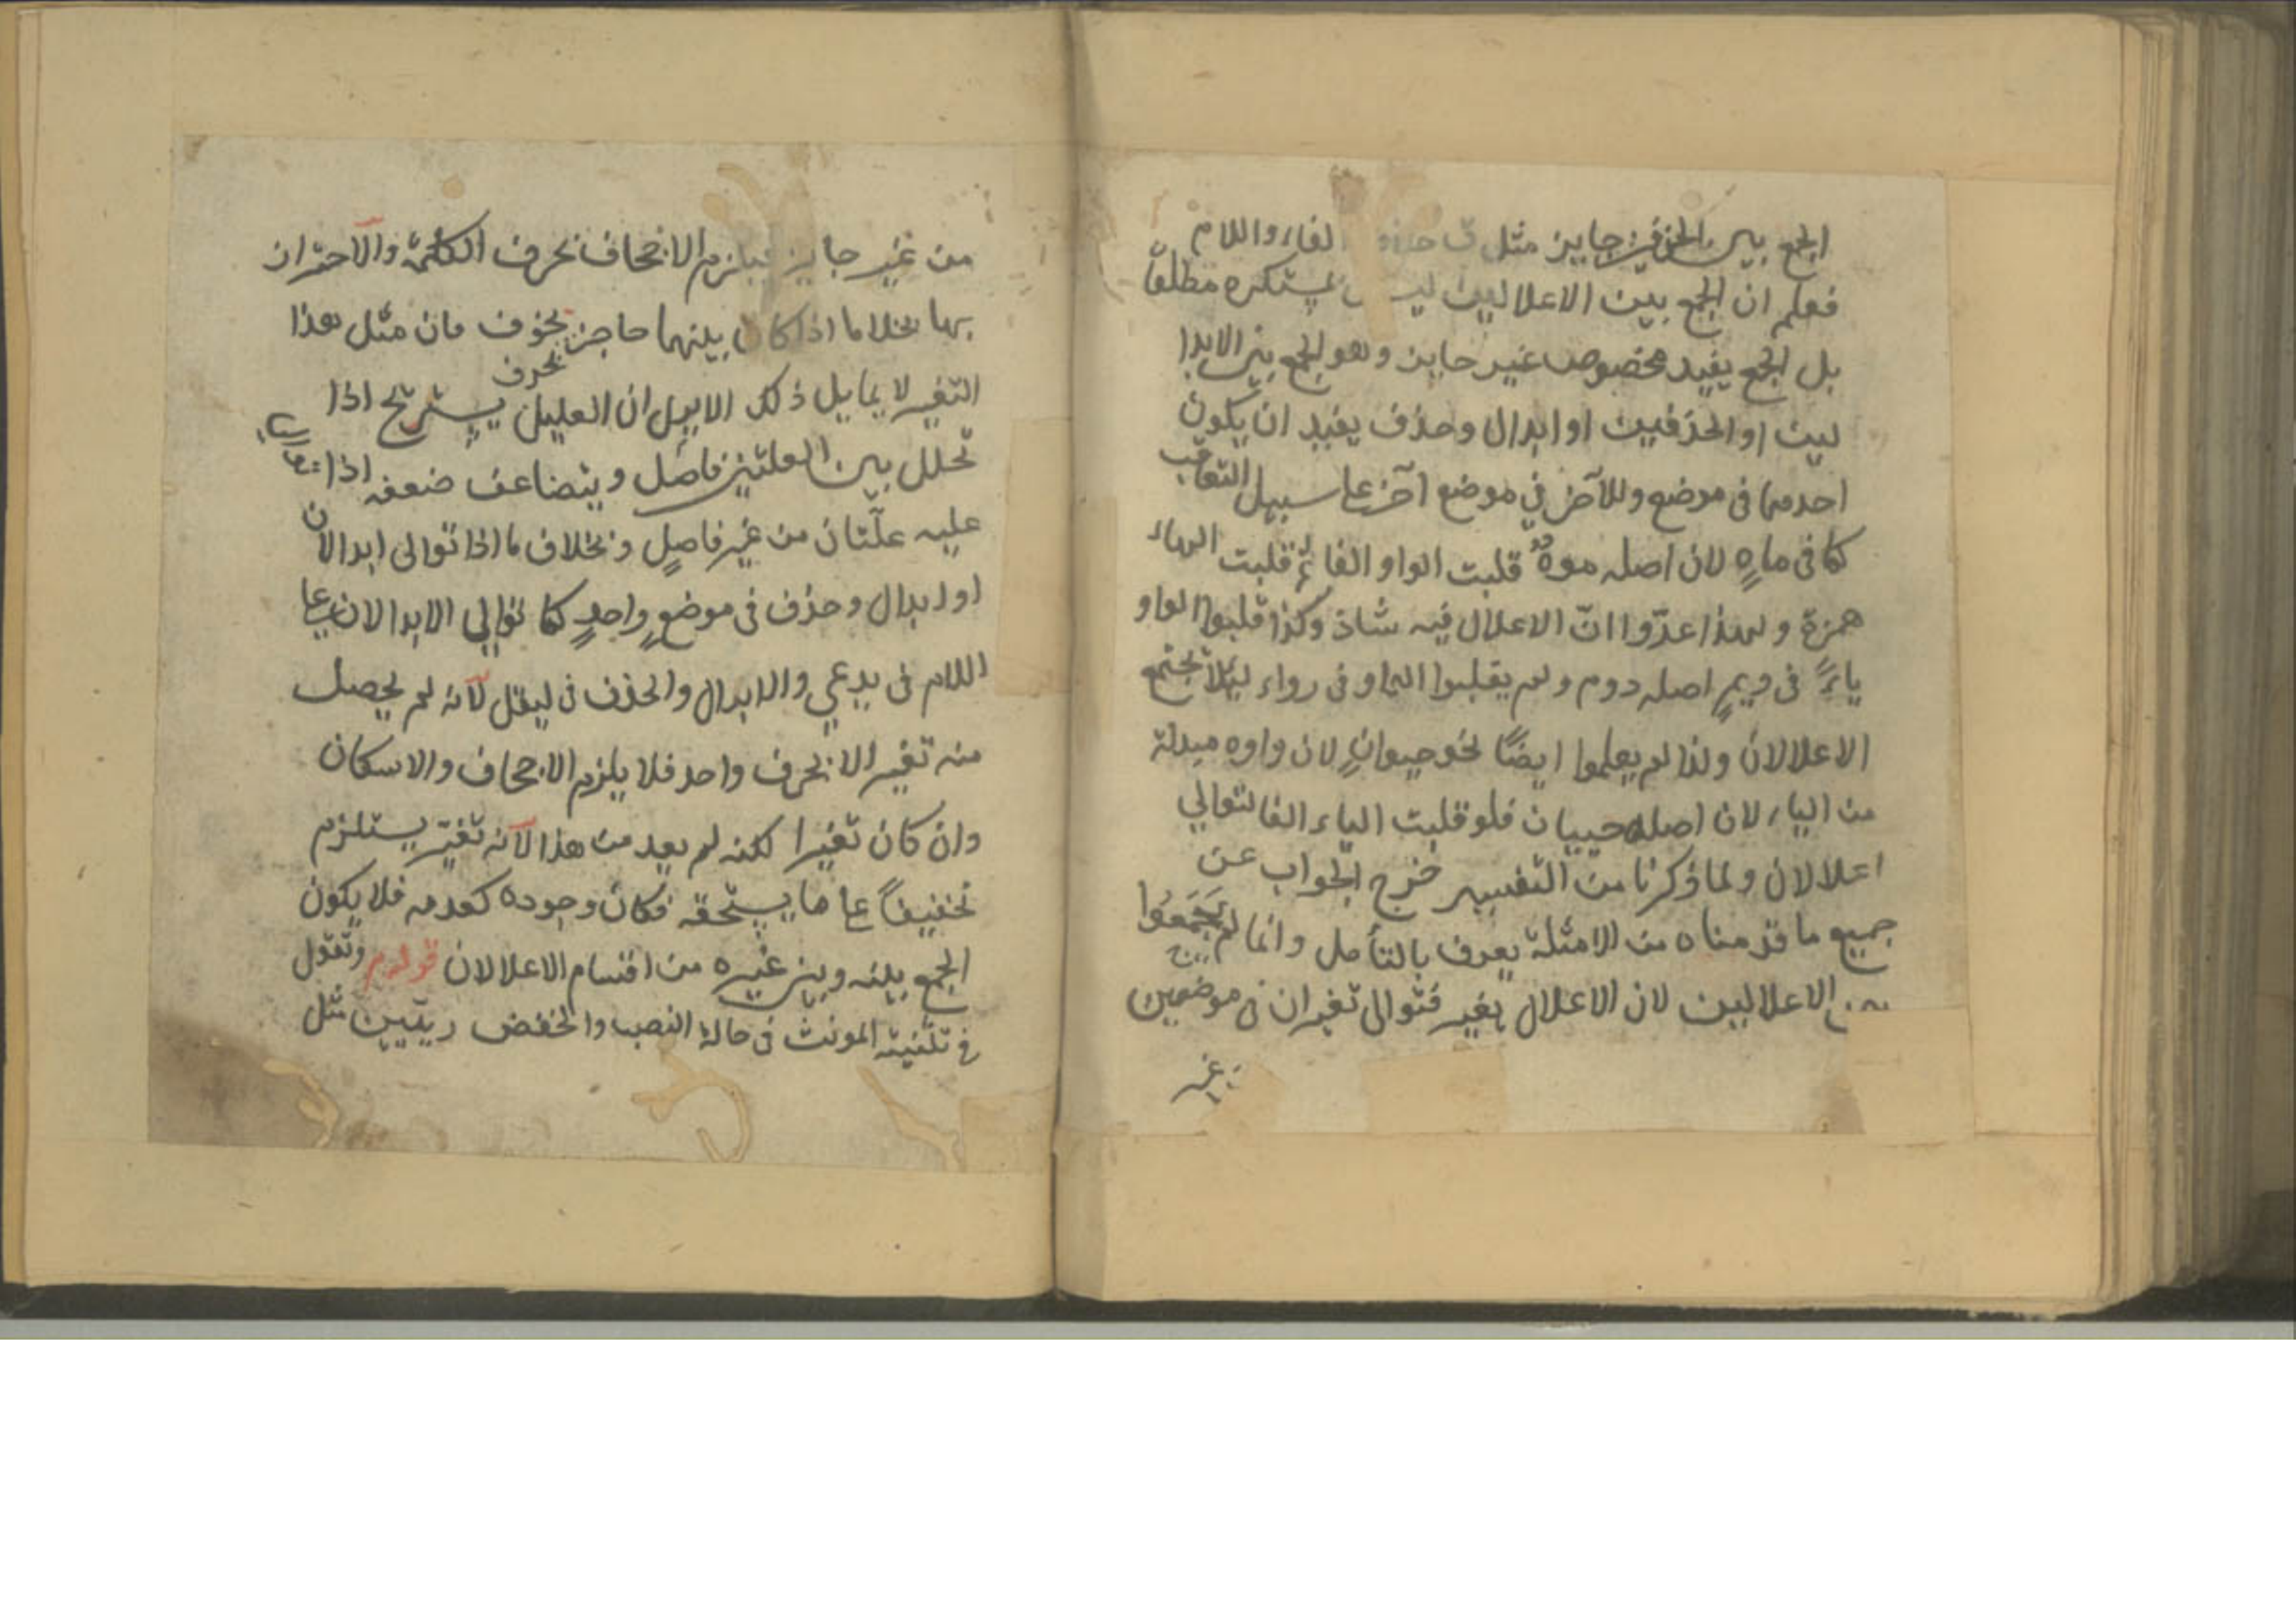 الجمع بين الحذفين جايز مثل ق حذف الفاء واللام
فعلم ان الجمع بين الاعلالين ليس بمستكره مطلقا
بل الجمع يفيد مخصوص غير جايز وهو الجمع بين الابدا
لين او الحذفين او ابدال وحذف يفيد ان يكون
احدهما فى موضع وللآخر في موضع آخر عا سبيل التعاقب
كما فى ماءٍ لان اصله موهٌ قلبت الواو الفا ثم قلبت الهاء
همزة ولهذا عدّوا انّ الاعلال فيه شاذ وكذا قلبوا الواو
ياءً فى ديمٍ اصله دوم ولم يقلبوا الواو فى رواء ليئلا يجتمع
الاعلالان ولذا لم يعلموا ايضًا نحو حيوانٍ لان واوه مبدلة
من الياء لان اصله حييان فلو قلبت الياء الفا لتوالي
اعلالان ولما ذكرنا من التفسير خرج الجواب عن
جميع ما قدمناه من الامثلة يعرف بالتأمل وانما لم يَجمَعُوا
بين الاعلالين لان الاعلال يغير فتوالى تغيران فى موضعين
من غير
من غير جايز فيلزم الاجحاف بحرف الكلمة والاحتران
بها بخلاف ما اذا كان بينهما حاجز بحوف فان مثل هذا
بحرف
التغير لا يمايل ذلك الا يعل ان العليل يستريح اذا
تخلل بين العلتين فاصل ويتضاعف ضعفه اذا
عليه علّتان من غير فاصلٍ وبخلاف ما اذا توالى ابدالان
او ابدال وحذف فى موضعٍ واحدٍ كما توالي الابدالان عا
اللام فى يدعي والابدال والحذف فى ليقل لآنه لم يحصل
منه تغير الا بحرف واحد فلا يلزم الاجحاف والاسكان
وان كان تغيرا لكنه لم يعد من هذا لآنه تغيّر يستلزم
تخفيفاً عا ما يستحقه فكان وجوده كعدمه فلا يكون
الجمع بينه وبين غيره من اقسام الاعلالان قوله وتقول
فى تثنية المونث فى حالة النصب والخفض ريتين مثل